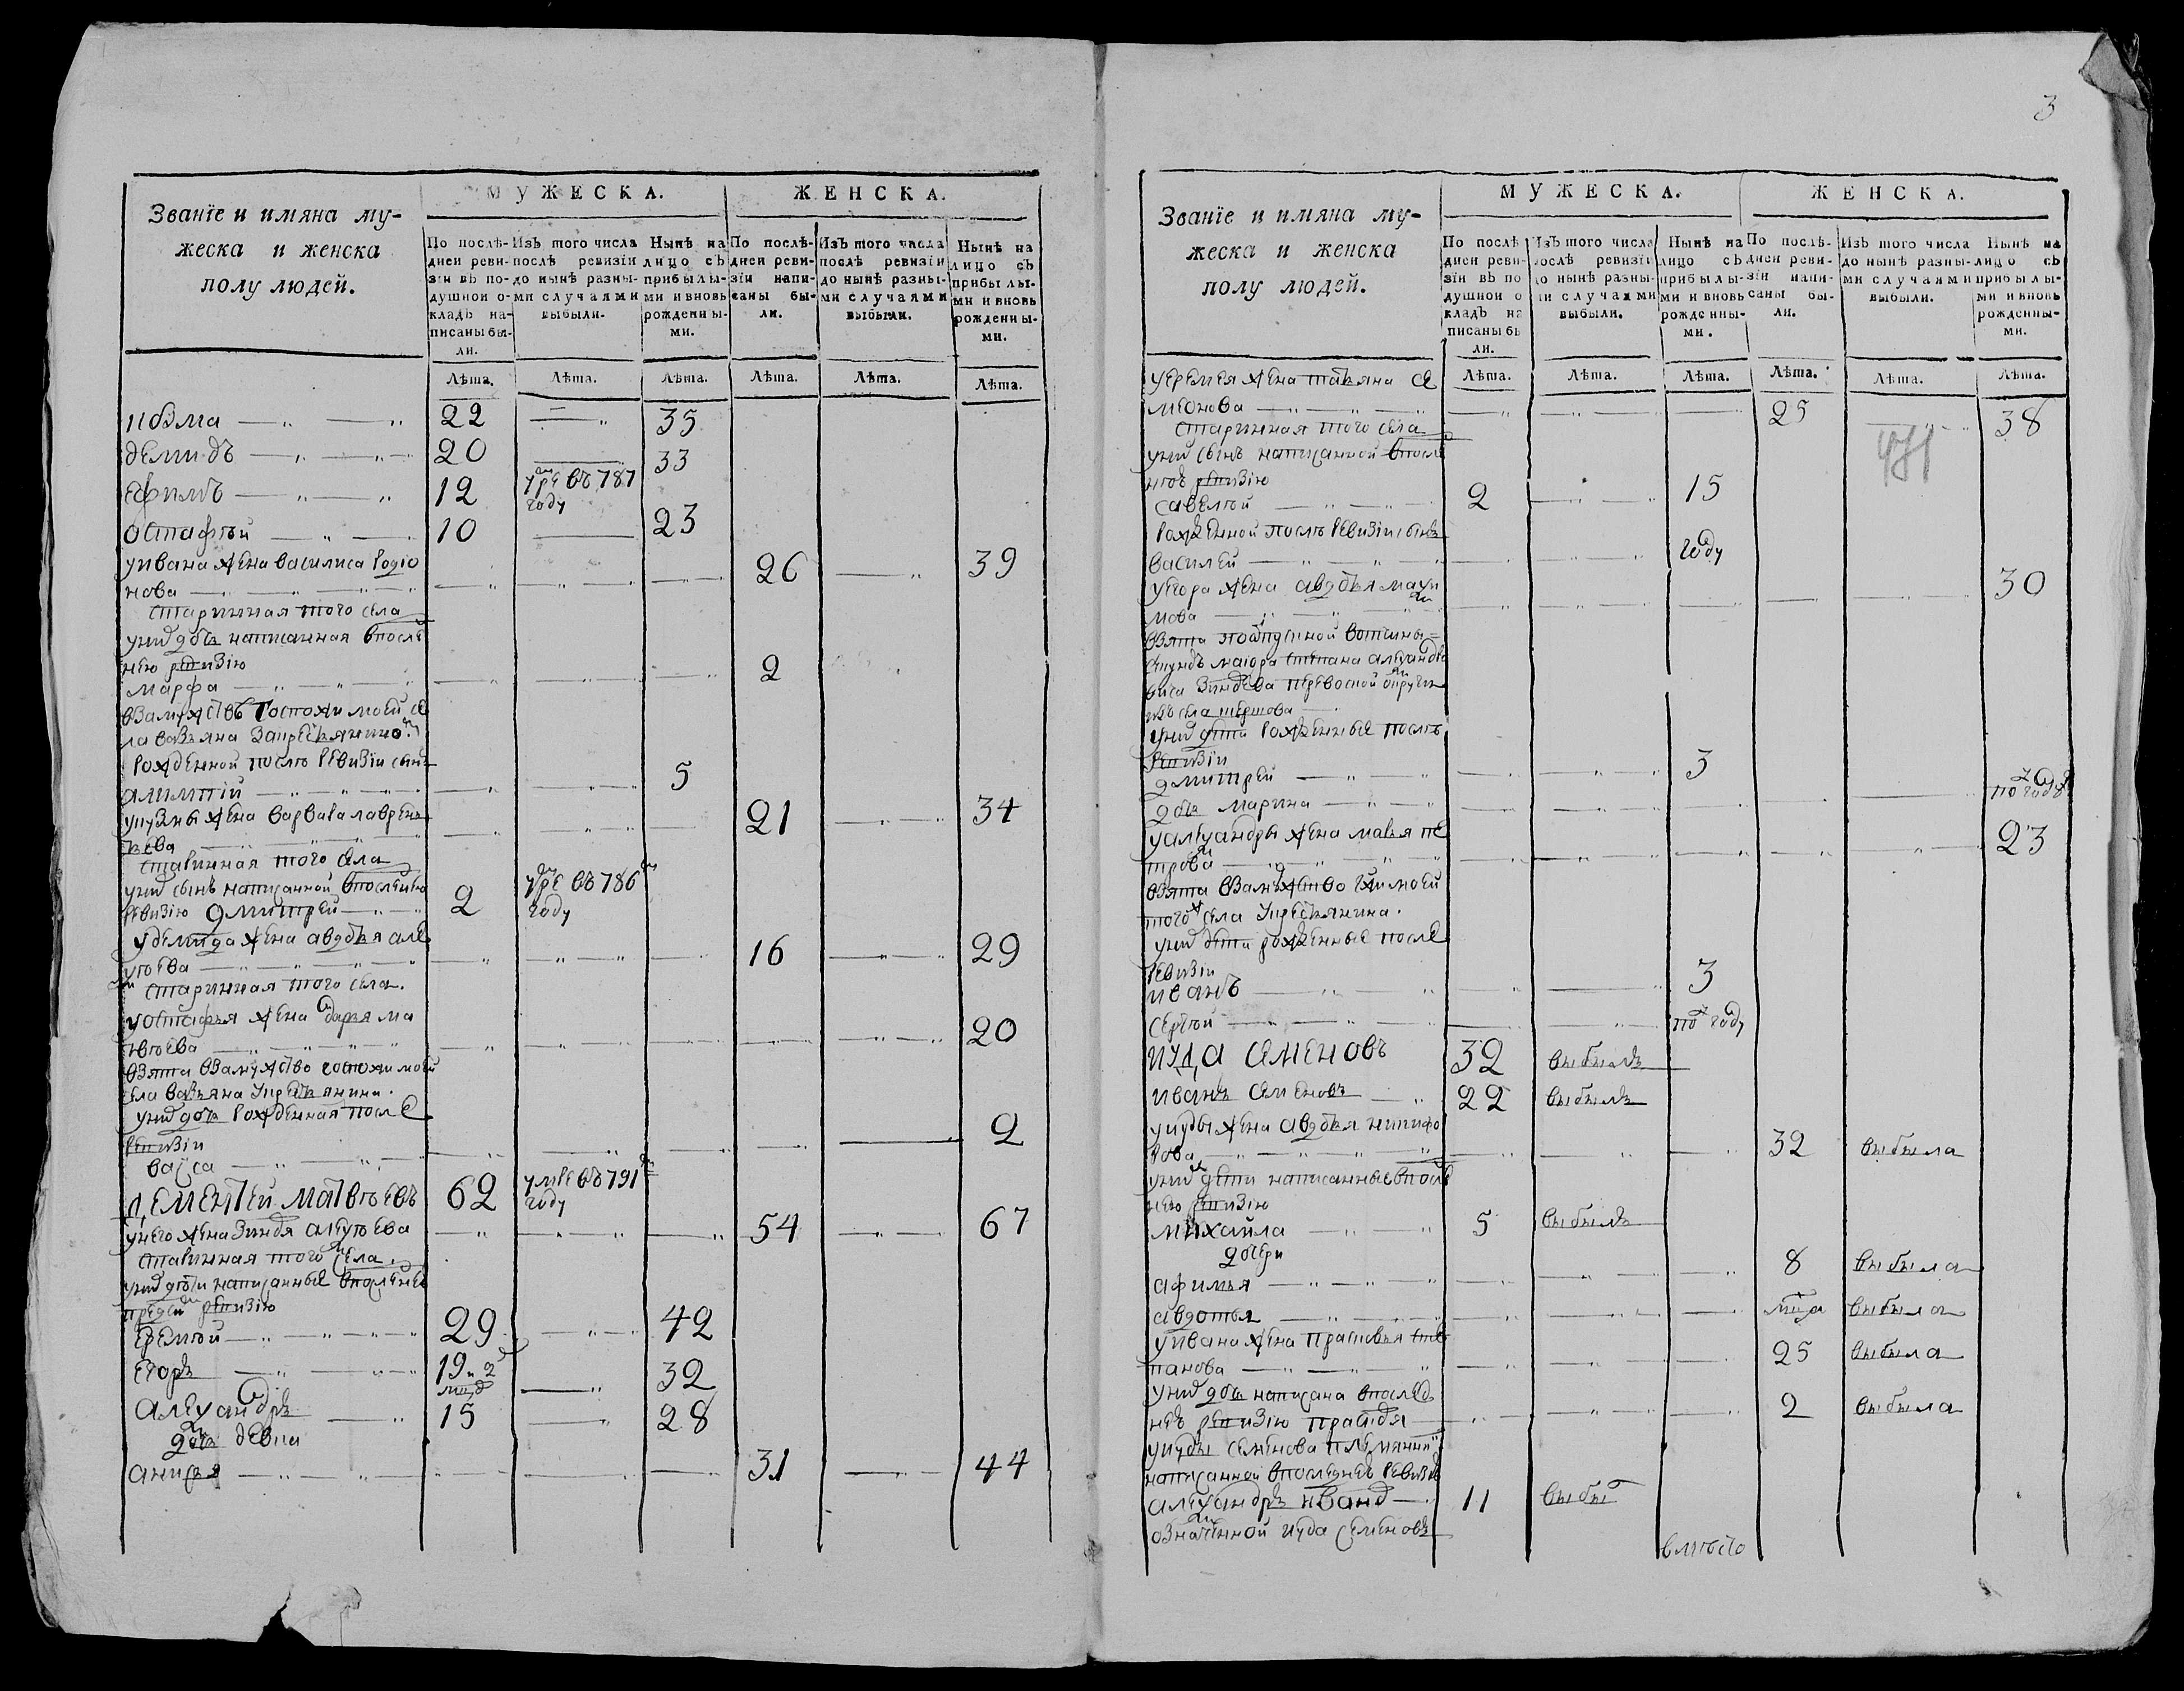 Званїе и имяна му-
жеска и женска
полу людей.
МУЖЕСКА.
ЖЕНСКА.
По послѣ-
днеи реви-
зїи въ по-
душнои о-
кладъ на-
писаны бы-
ли.
Изъ того числа
послѣ ревизїи
до нынѣ разны-
ми случаями
выбыли.
Нынѣ на
лицо съ
прибылы-
ми и вновь
рожденны-
ми.
По послѣ-
днеи реви-
зїи напи-
саны бы-
ли.
Изъ того числа
послѣ ревизїи
до нынѣ разны-
ми случаями
выбыли.
Нынѣ на
лицо съ
прибылы-
ми и вновь
рожденны-
ми.
Лѣта. Лѣта. Лѣта. Лѣта. Лѣта. Лѣта.
22 35
демидъ 20 33
ефимъ 12 умре въ 787
году
остафѣй 10 23
уивана жена василиса родио
нова 26 39
старинная того села
уних дочь написанная впослѣ
нею ревизию
марфа 2
взамужствѣ госпожи моей се
ла
рожденной послѣ ревизїи сынъ
5
жена варвара лаврень
тьева 21 34
старинная того села
уних сынъ написанной впослѣднею
ревизию дмитрей 2 умре въ 786
году
удемида жена авдотья але
ѯѣева 16 29
старинная того села.
уостафья жена дарья ма
твѣева 20
взята взамужство госпожи моей
села у крестьянина.
уних дочь рожденная после
ревизїи
васса 2
дементей матвѣевъ 62 умре въ 791
году
унего жена алеѯѣева 54 67
старинная того села.
уних дѣти написанные впослѣднею
пред сей ревизию
еремѣй 29 42
егоръ 19 и 2
32
алеѯандръ 15 28
дочь девка
анисья 31 44
3
Званїе и имяна му-
жеска и женска
полу людей.
МУЖЕСКА.
ЖЕНСКА.
По послѣ
днеи реви-
зїи въ по
душнои о
кладъ на
писаны бы
ли.
Изъ того числа
послѣ ревизїи
до нынѣ разны-
ми случаями
выбыли.
Нынѣ на
лицо съ
прибылы-
ми и вновь
рожденны-
ми.
По послѣ-
днеи реви-
зїи напи-
саны бы-
ли.
Изъ того числа
до нынѣ разны-
ми случаями
выбыли.
Нынѣ на
лицо съ
прибылы-
ми и вновь
рожденны-
ми.
Лѣта. Лѣта. Лѣта. Лѣта. Лѣта. Лѣта.
уеремея жена татьяна се
менова 25 38
старинная того села
уних сынъ написанной впослѣ
нюю ревизию
савелѣй 2 15
рожденной послѣ ревизїи сынъ
василей году
уегора жена авдотья маѯи
мова 30
взята по отпускной вотчины
секундъ маїора степана алеѯандро
вича
из села
уних дѣти рожденные послѣ
ревизїи
дмитрей 3
дочь марина полгоду
уалеѯандры жена марья пе
трова 23
взята взамужство гжи моей
того ж села у крестьянина.
уних дѣти рожденные после
ревизїи
иванъ 3
сергѣй полгоду
иуда семеновъ 32 выбылъ
иванъ семеновъ 22 выбылъ
уиуды жена авдотья никифо
рова 32 выбыла
уних дѣти написанные впослѣ
нею ревизию
михайла 5 выбылъ
дочери
афимья 8 выбыла
авдотья выбыла
уивана жена прасковья сте
панова 25 выбыла
уних дочь написана впослѣд
нею ревизию 2 выбыла
уиуды семенова племянник
написанной впослѣднею ревизию
алеѯандръ иванов 11 выбыл
означенной иуда семеновъ
вмѣсто